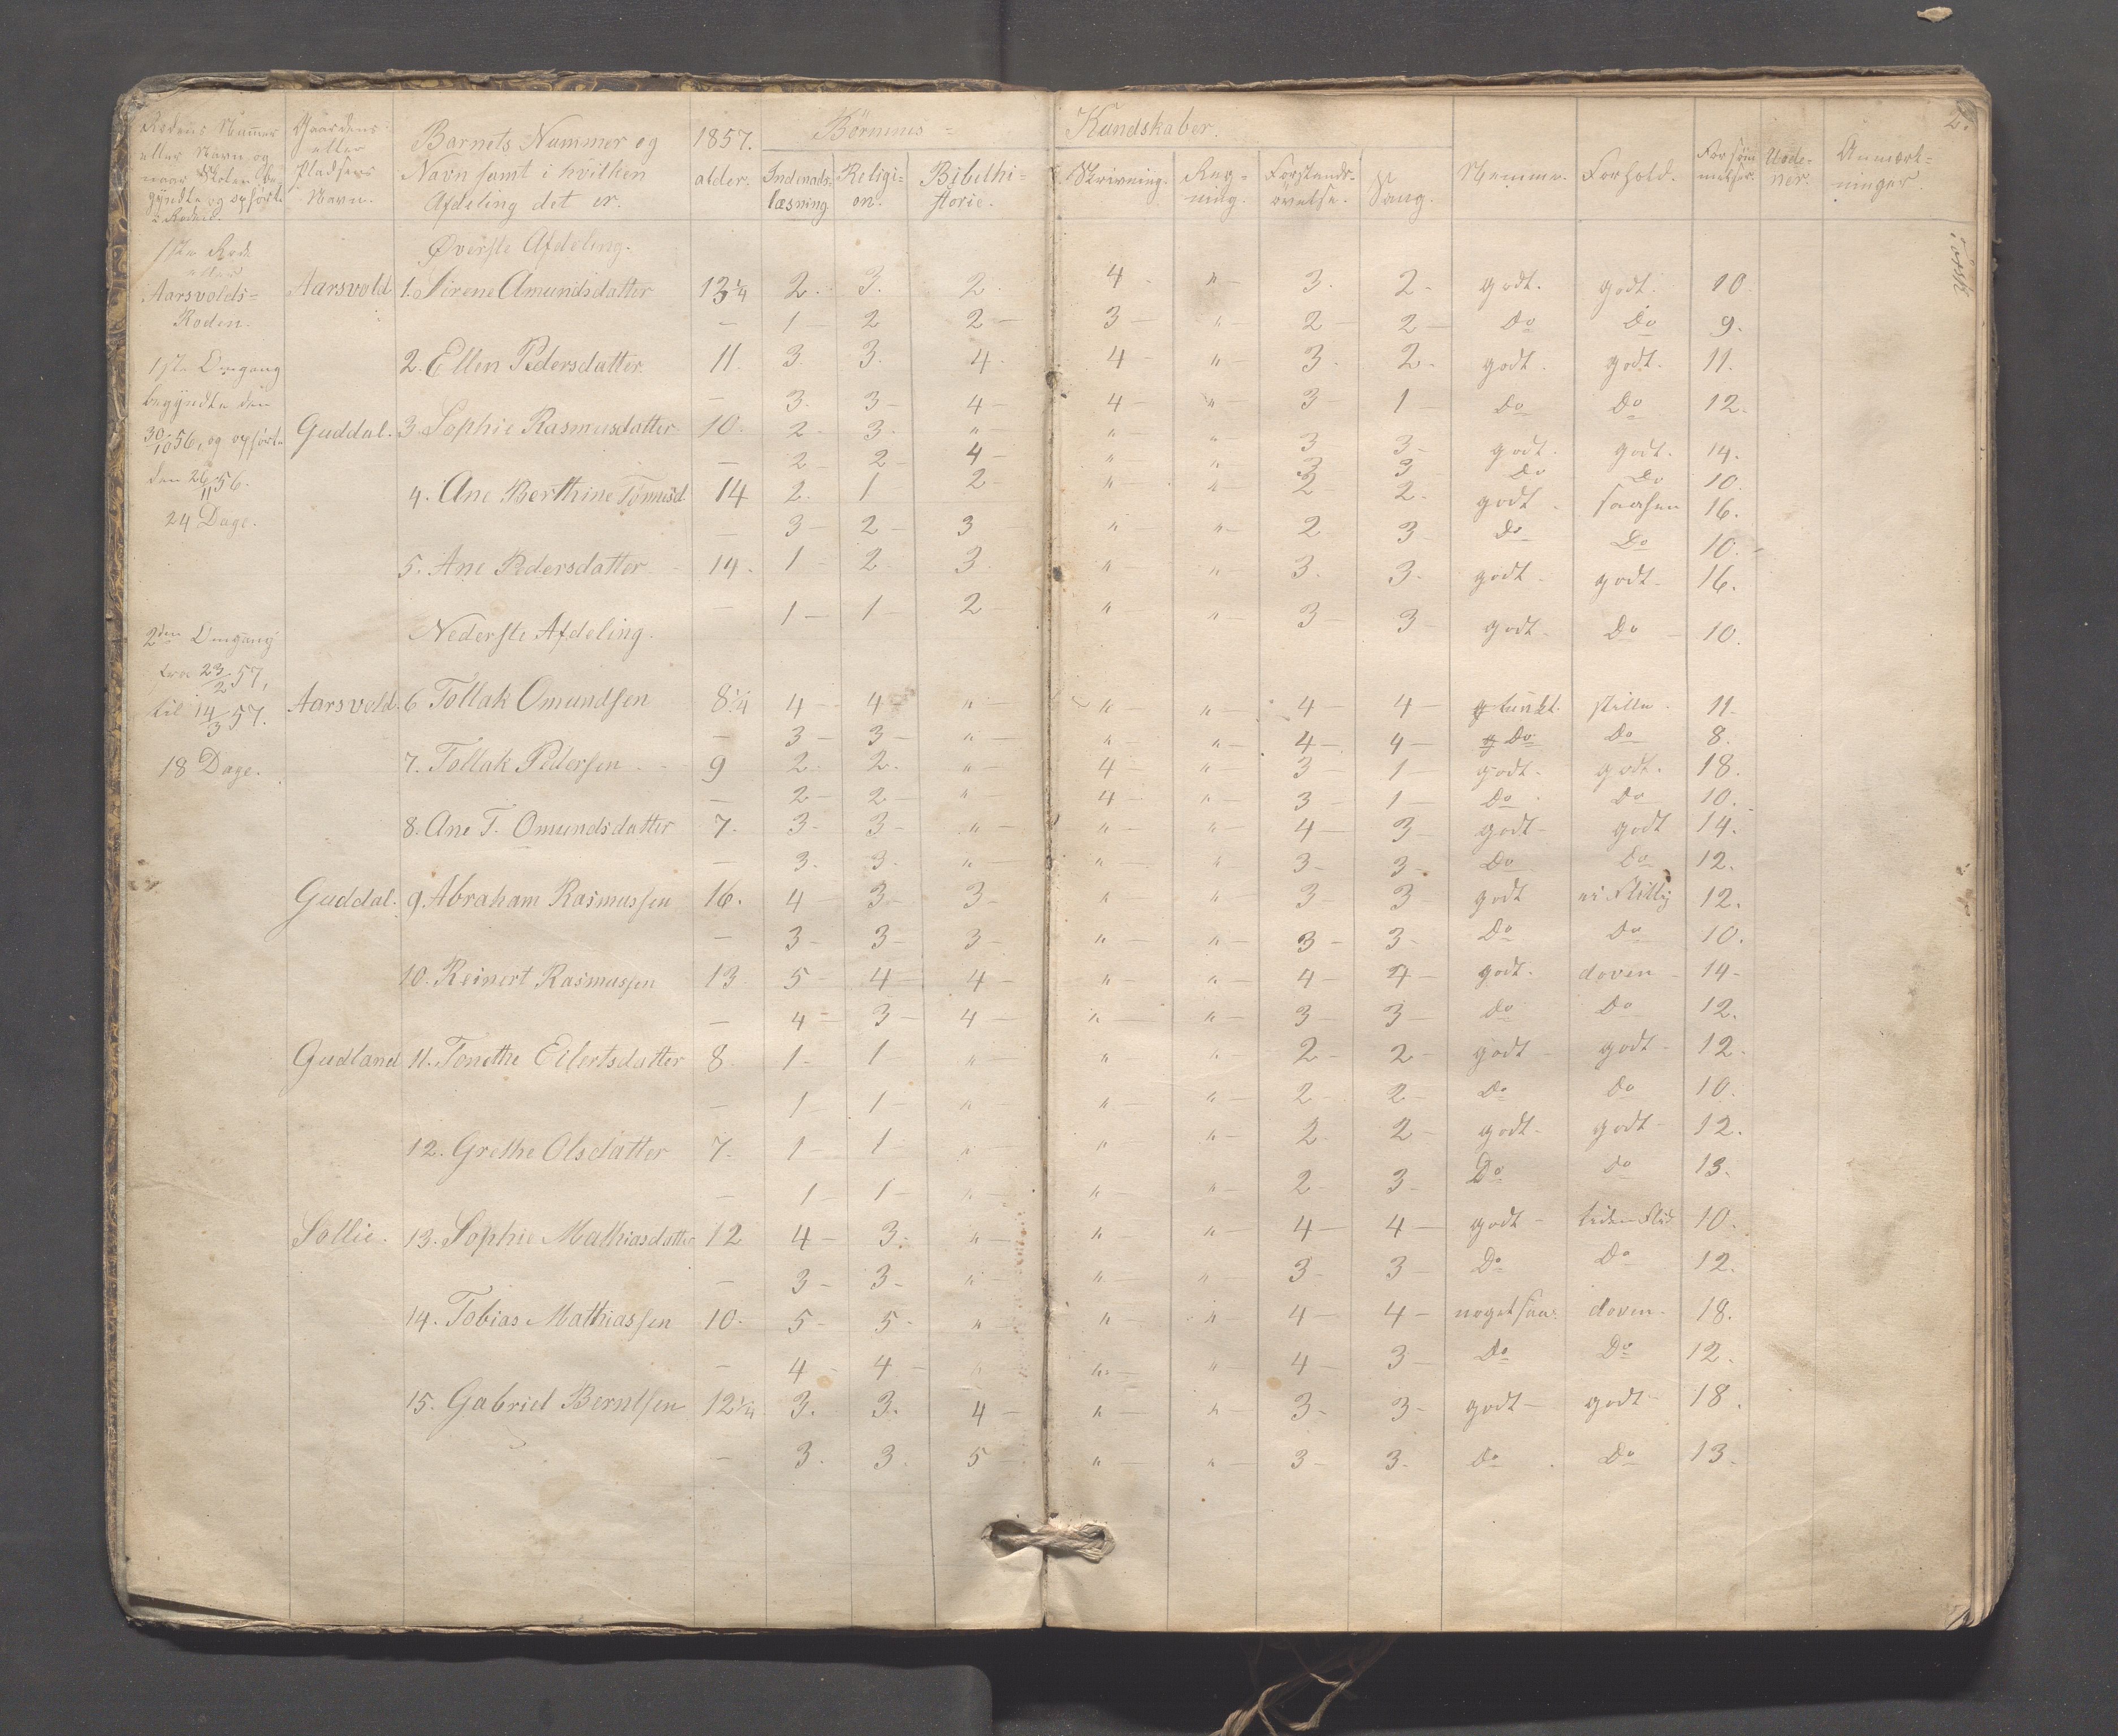 2.
Rodens Nummer Gaardens Barnets Nummer og 1857. Børnenes Kundskaber.
eller Navn og eller Navn samt i hvilken alder. Indenads- Religi- Bibelhi- Skrivning. Reg- Forstands- Sang. Nemme. Forhold. Forsøm- Anmærk-
naar Skolen be- Pladsens Afdeling det er. læsning on. storie. ning. øvelse. melser. ninger.
gyndte og ophørte Navn.
i Roden.
1ste Rode Øverste Afdeling.
eller
Aarsvolds- Aarsvold 1. Sirene Amundsdatter 13 1/4 2. 3. 2. 4 - " - 3. 2 - godt. godt. 10.
Roden. — 1 — 2 2 — 3 — " - 2 — 2 — Do Do 9.
1ste Omgang 2. Ellen Pedersdatter. 11. 3. 3. 4. 4 - " 3. 2 - godt. godt. 11.
begyndte den — 3. 3 — 4 — 4 — " — 3 — 1 — Do Do 12.
30/10 56, og ophørte Guddal. 3. Sophie Rasmusdatter 10. 2. 3. " — " — " — 3 3 — godt. godt. 14.
— 2 — 2 — 4 — " — " 3 3 Do Do 10.
den 26/11 56. 4. Ane Berthine Tønnesd 14 2. 1 2 — " — " — 2 2. godt. 16.
24 Dage. — 3 — 2 — 3 " — " — 2 3 Do Do 10.
5. Ane Pedersdatter 14. 1 — 2. 3. " — " 3. 3. godt - godt - 16.
— 1 — 1 — 2 — " — " — 3 — 3 — godt. Do — 10.
2den Omgang Nederste Afdeling.
fra 23/2 57,
til 14/3 57. Aarsvold. 6 Tollak Omundsen 8 1/4 4 — 4 — " — " — " — 4 — 4 — stille. 11.
— 3 — 3 — " — " — " — 4 — 4 — Do Do 8.
18 Dage. 7. Tollak Pedersen 9 2. 2. " — 4 — " — 3 — 1 — godt - godt. 18.
— 2 — 2 — " — 4 — " — 3 — 1 — Do Do 10.
8. Ane T. Omundsdatter 7. 3 — 3 — " — " — " — 4 — 3 — godt - godt 14.
— 3. 3. " — " — " 3 — 3 — Do Do 12.
Guddal. 9. Abraham Rasmussen 16. 4 — 3 — 3 — " — " — 3 — 3 — godt 12.
— 3 — 3 — 3 — " — " — 3 — 3 — Do Do 10.
10. Reinert Rasmussen 13 5 — 4 — 4 — " — " — 4 — 4 — godt. doven 14 -
— 4 — 3 — 4 — " — " — 3 — 3 — Do Do 12.
Gudland 11. Tonethe Eilertsdatter 8. 1 — 1 " " " 2 — 2 — godt - godt - 12.
— 1 — 1 — " — " — " — 2 — 2 — Do Do 10.
12. Grethe Olsdatter 7. 1 — 1 " — " " — 2 2 — godt - godt - 12.
— 1 — 1 — " — " — " — 2 — 3 — Do Do 13.
Sollie. 13. Sophie Mathiasdatter 12 4 — 3. " — " — " — 4 — 4 — godt - liden Flid 10.
— 3 — 3 — " — " — " — 3 — 3 — Do Do 12.
14. Tobias Mathiassen 10. 5 — 5 — " — " — " — 4 — 4 — noget saa. doven. 18.
— 4 — 4 — " — " — " 4 — 3 — Do Do 12.
15. Gabriel Berntsen 12 1/4 3. 3. 4 — " — " — 3 — 3 — godt - godt - 18.
— 3. 3. 5 — " — " — 3 — 3. Do Do 13.